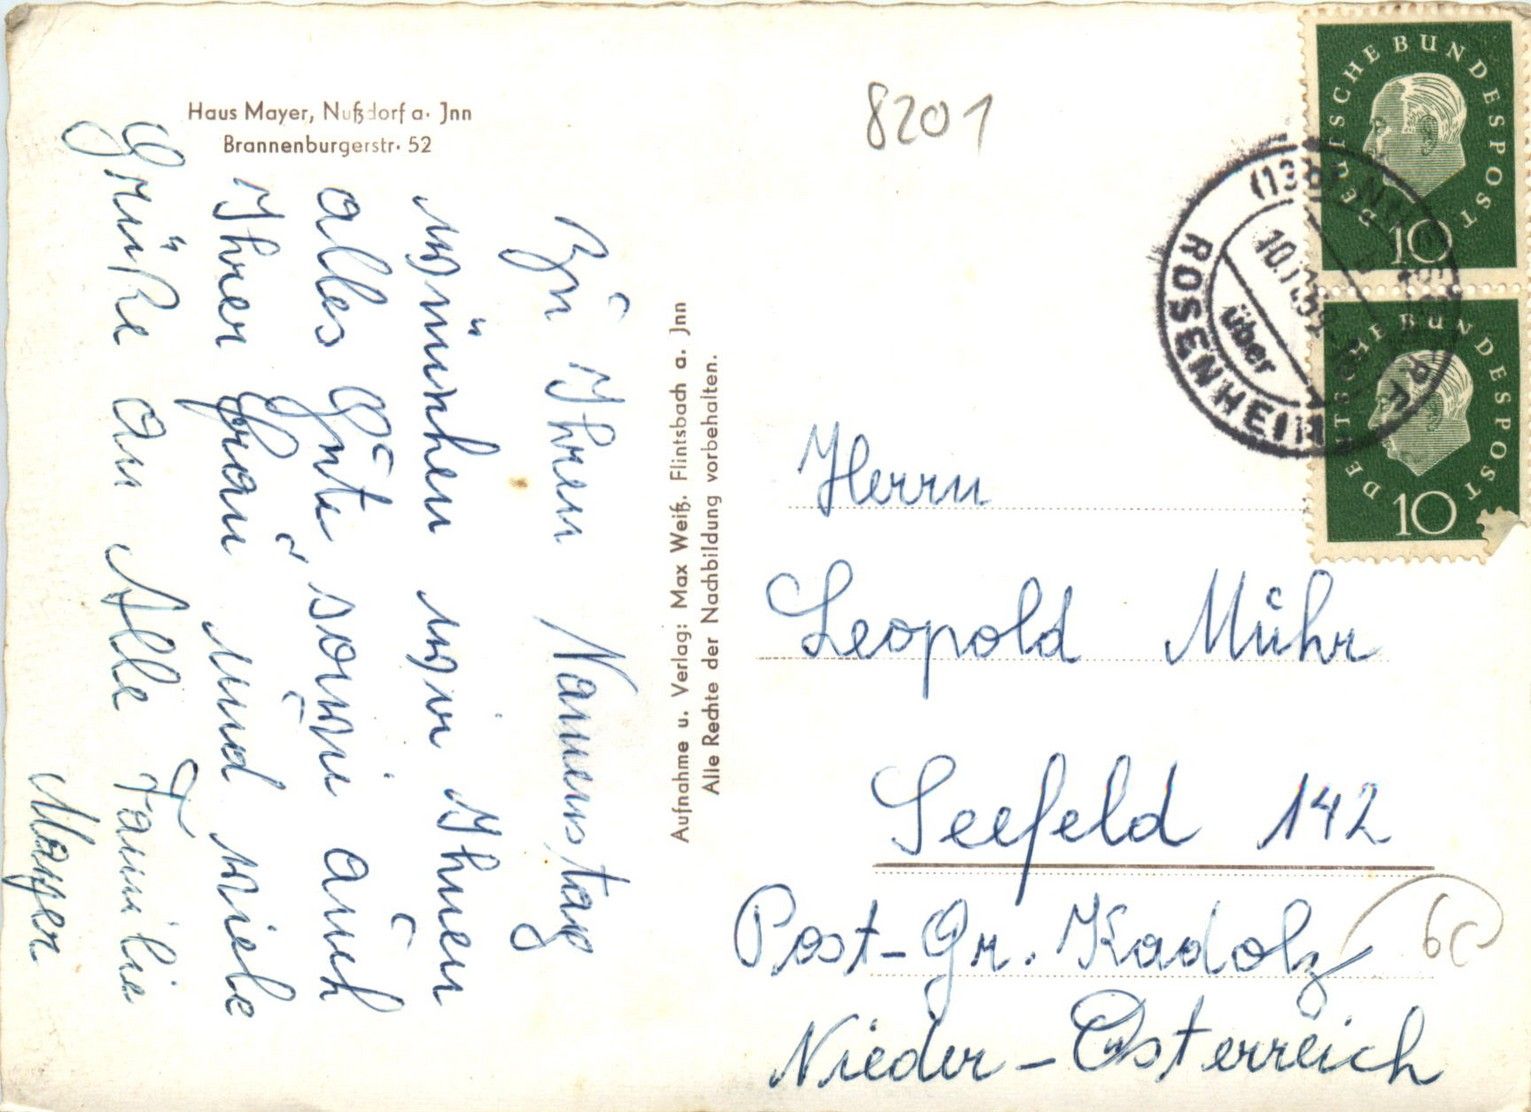 Haus Mayer, Nußdorf a. Jnn
Brannenburgerstr. 52
8201
Zu Ihrem Namenstag
wünschen wir Ihnen
alles Gute, sowie auch
Ihrer Frau und viele
Grüße an Alle Familie
Mayer
Aufnahme u. Verlag: Max Weiß, Flintsbach a. Jnn
Alle Rechte der Nachbildung vorbehalten.
DEUTSCHE BUNDESPOST
10
DEUTSCHE BUNDESPOST
10
über
ROSENHEIM
Herrn
Leopold Mühr
Seefeld 142
Post-Gr. Kadolz
Nieder-Österreich